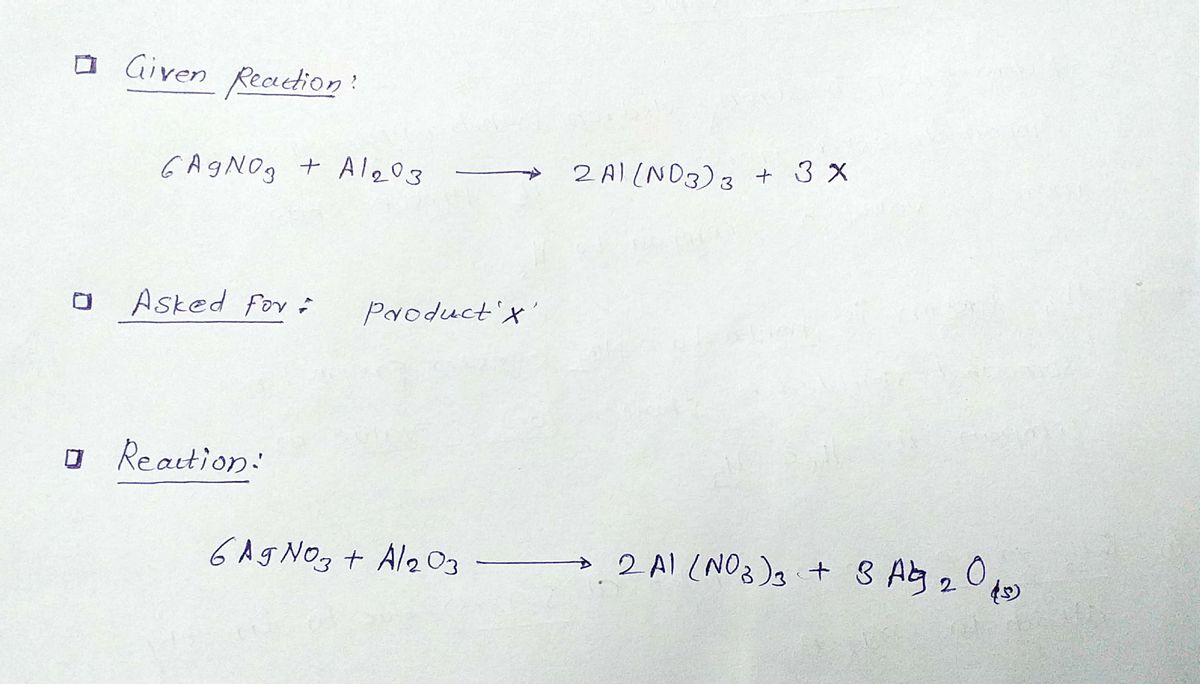 Given Reaction:
6 AgNO3 + Al2O3 → 2 Al (NO3)3 + 3 X
Asked for: Product 'X'
Reaction:
6 AgNO3 + Al2O3 → 2 Al (NO3)3 + 3 Ag2O(s)